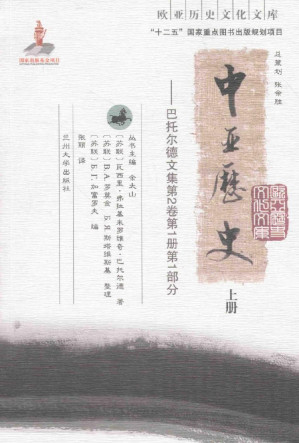 欧亚历史文化文库
“十二五”国家重点图书出版规划项目
总策划 张余胜
中亚历史
上册
——巴托尔德文集第2卷第1册第1部分
丛书主编 余太山
〔苏联〕瓦西里·弗拉基米罗维奇·巴托尔德 著
〔苏联〕B.A.罗莫金 Б.Я.斯塔维斯基 整理
〔苏联〕Б.Г.加富罗夫 编
张丽 译
兰州大学出版社
国家出版基金项目